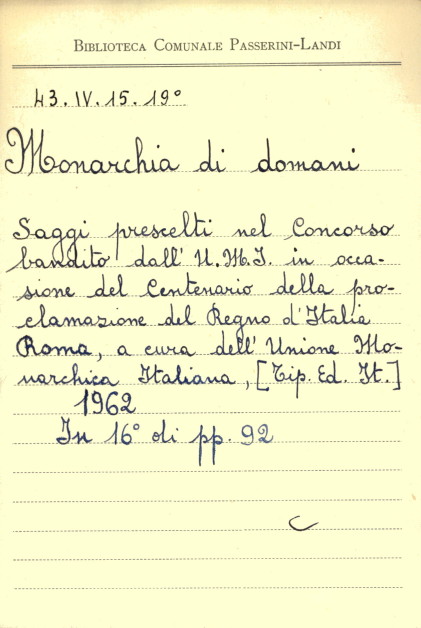 BIBLIOTECA COMUNALE PASSERINI-LANDI
43.IV.15.19°
Monarchia di domani
Saggi prescelti nel Concorso
bandito dall' U.M.I. in occa-
sione del Centenario della pro-
clamazione del Regno d'Italia
Roma, a cura dell'Unione Mo-
narchica Italiana, [Tip. Ed. It.]
1962
In 16° di pp. 92
C